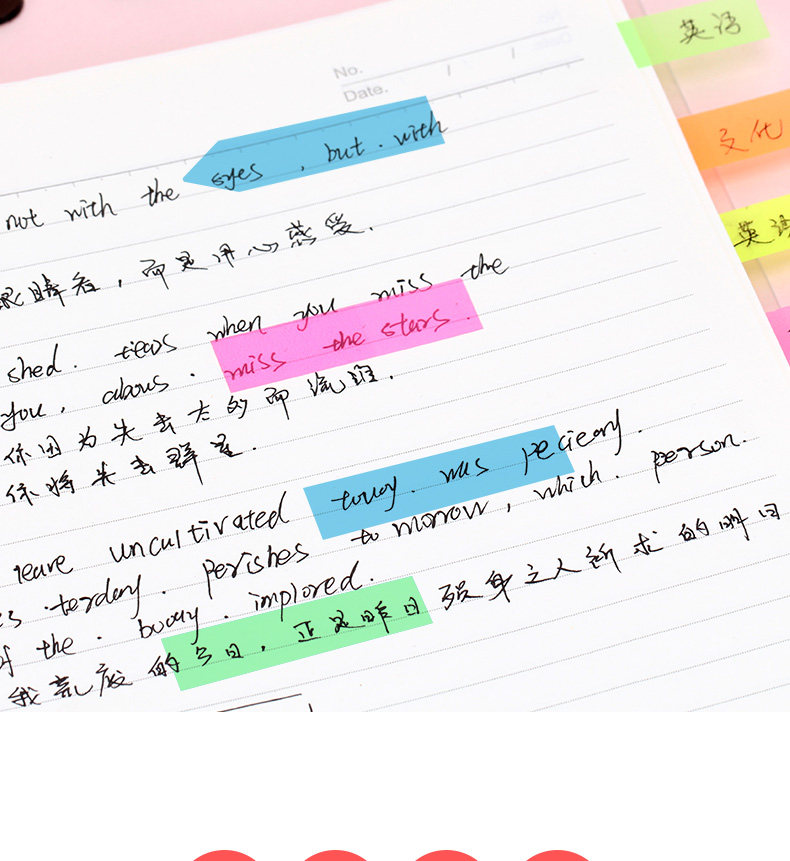 No.
Date. / /
英语
文化
英语
not with the eyes , but . with
眼睛看，而是用心感爱.
shed . tears when you miss the
you , abous . miss the stars .
你因为失去太的而流泪.
你将失去群星.
leave uncultivated touay . was pecieary .
terday . perishes to morrow , which . person.
f the . bouy . implored .
我荒废的今日，正是昨日殒身之人祈求的明日